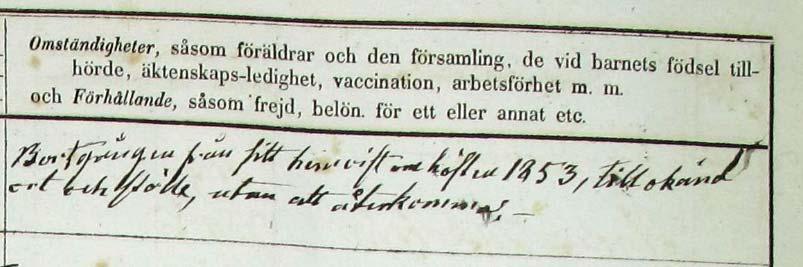 Omständigheter, såsom föräldrar och den församling, de vid barnets födsel till-
hörde, äktenskaps-ledighet, vaccination, arbetsförhet m. m.
och Förhållande, såsom frejd, belön. för ett eller annat etc.
Bortgången från sitt hemvist om hösten 1853, till okänd
ort och ställe, utan att återkomma. –